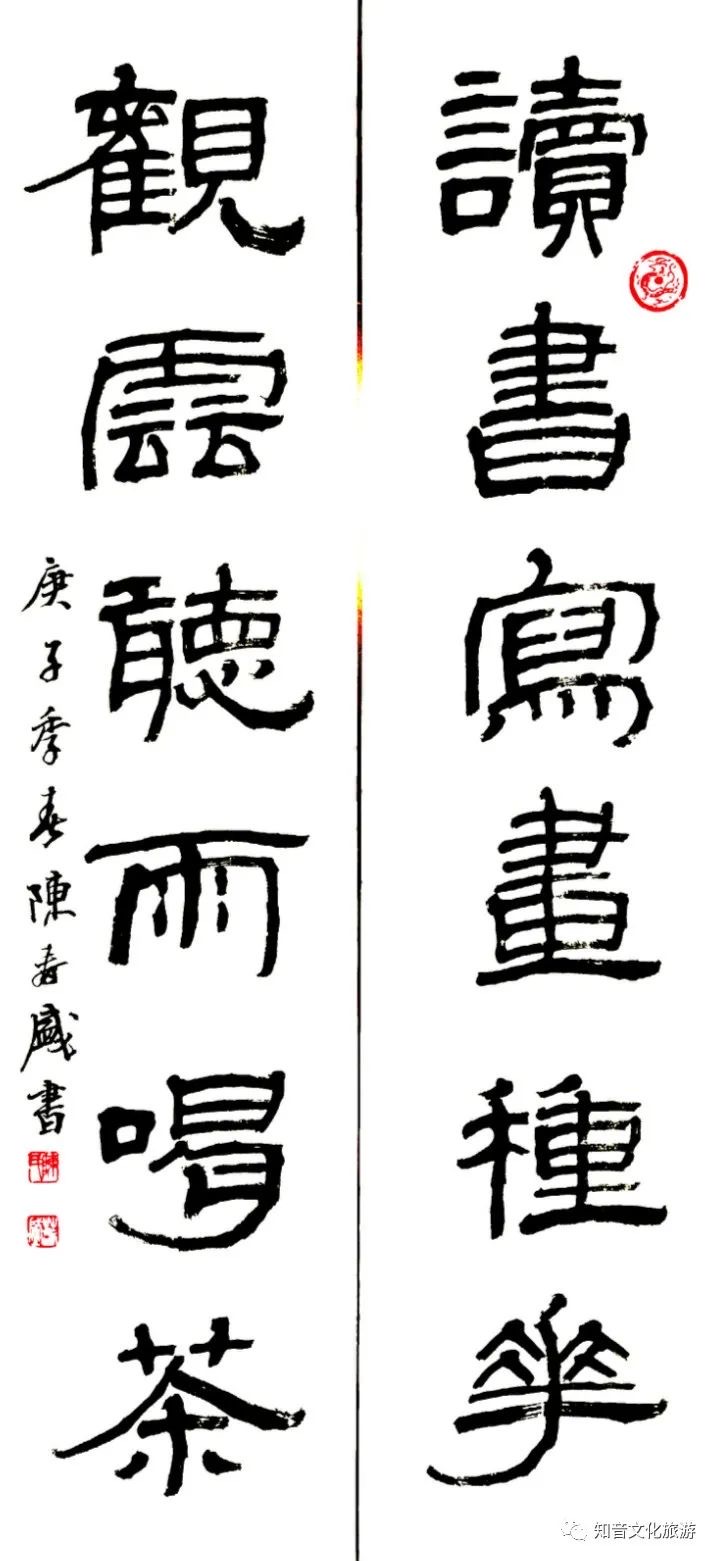 讀書寫畫種華
觀雲聽雨喝茶
庚子季春陳春盛書
知音文化旅游